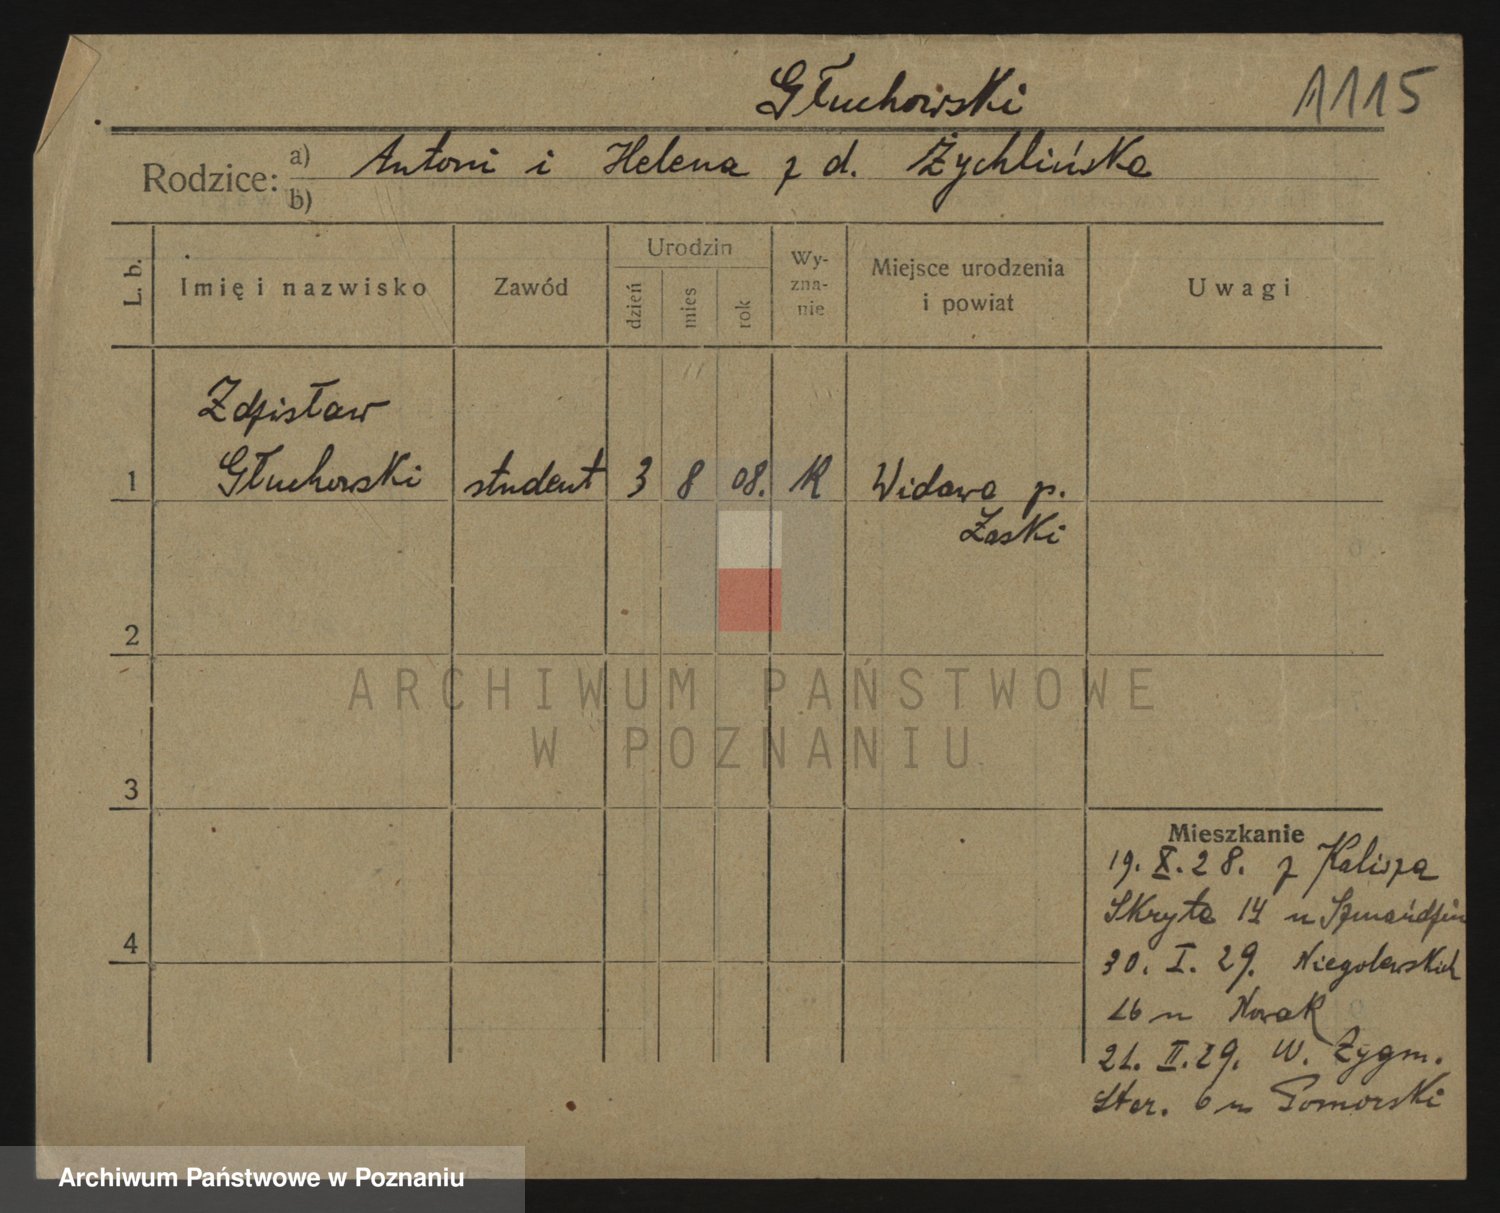 Głuchowski 1115
Rodzice: a) Antoni i Helena z d. Żychlińska
b)
L. b. Imię i nazwisko Zawód Urodzin dzień mies rok Wyznanie Miejsce urodzenia i powiat Uwagi
Zdzisław
1 Głuchowski student 3 8 08. K Widawa p.
Łaski
2
ARCHIWUM PAŃSTWOWE
W POZNANIU
3
Mieszkanie
19. X. 28. z Kalisza
Skryta 14 u
4
30. I. 29. Niegolewskich
26 u Nowak
21. II. 29. W. Zygm.
Star. 6 u Pomorski
Archiwum Państwowe w Poznaniu